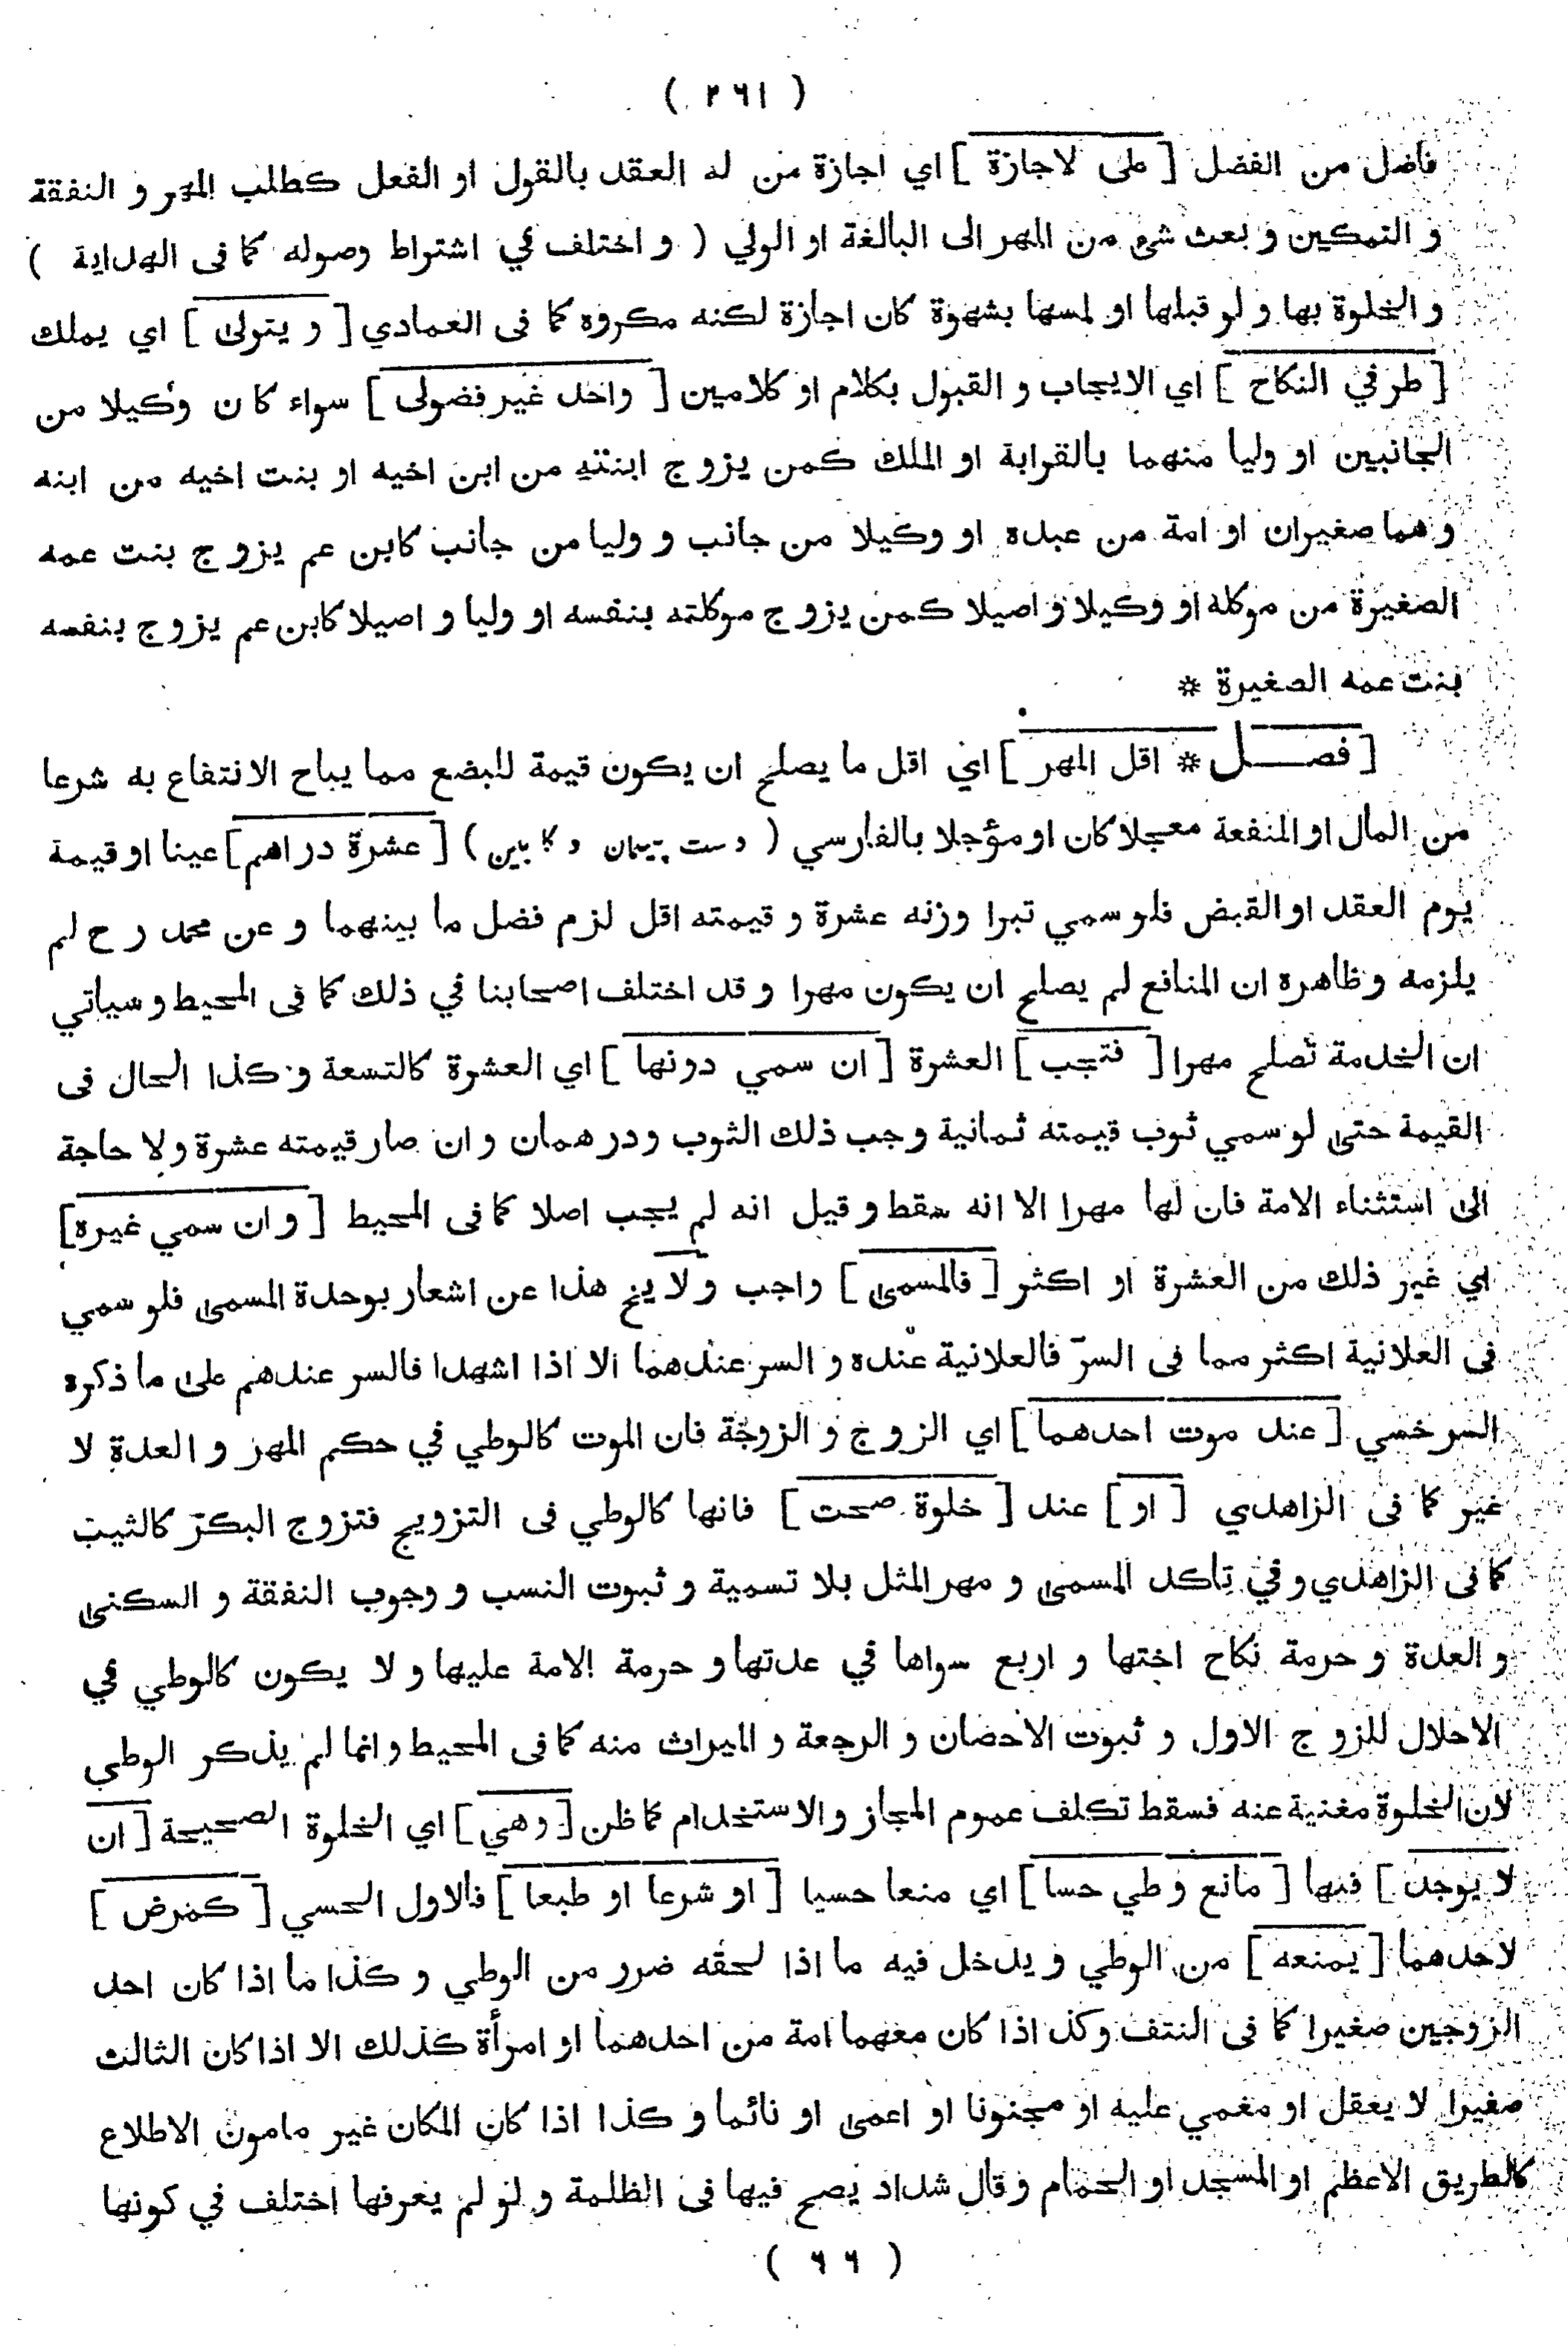 ( ٢٦١ )
فاضل من الفضل [ على لاجازة ] اي اجازة من له العقد بالقول او الفعل كطلب المهر و النفقة
و التمكين و بعث شئ من المهر الى البالغة او الولي ( و اختلف في اشتراط وصوله كما فى الهداية )
و الخلوة بها و لو قبلها او لمسها بشهوة كان اجازة لكنه مكروه كما فى العمادي [ و يتولى ] اي يملك
[ طرفي النكاح ] اي الايجاب و القبول بكلام او كلامين [ واحد غير فضولى ] سواء كان وكيلا من
الجانبين او وليا منهما بالقرابة او الملك كمن يزوج ابنته من ابن اخيه او بنت اخيه من ابنه
و هما صغيران او امة من عبده او وكيلا من جانب و وليا من جانب كابن عم يزوج بنت عمه
الصغيرة من موكله او وكيلا و اصيلا كمن يزوج موكلته بنفسه او وليا و اصيلا كابن عم يزوج بنفسه
بنت عمه الصغيرة *
[ فصــل * اقل المهر ] اي اقل ما يصلح ان يكون قيمة للبضع مما يباح الانتفاع به شرعا
من المال او المنفعة معجلا كان او مؤجلا بالفارسي ( دست پيمان و كابين ) [ عشرة دراهم ] عينا او قيمة
يوم العقد او القبض فلو سمي تبرا وزنه عشرة و قيمته اقل لزم فضل ما بينهما و عن محمد رح لم
يلزمه و ظاهره ان المنافع لم يصلح ان يكون مهرا و قد اختلف اصحابنا في ذلك كما فى المحيط و سياتي
ان الخدمة تصلح مهرا [ فتجب ] العشرة [ ان سمي دونها ] اي العشرة كالتسعة و كذا الحال فى
القيمة حتى لو سمي ثوب قيمته ثمانية وجب ذلك الثوب و درهمان و ان صار قيمته عشرة و لا حاجة
الى استثناء الامة فان لها مهرا الا انه سقط و قيل انه لم يجب اصلا كما فى المحيط [ و ان سمي غيره ]
اي غير ذلك من العشرة او اكثر [ فالمسمى ] واجب و لا يخ هذا عن اشعار بوحدة المسمى فلو سمي
فى العلانية اكثر مما فى السرّ فالعلانية عنده و السر عندهما الا اذا اشهدا فالسر عندهم على ما ذكره
السرخسي [ عند موت احدهما ] اي الزوج و الزوجة فان الموت كالوطي في حكم المهر و العدة لا
غير كما فى الزاهدي [ او ] عند [ خلوة صحت ] فانها كالوطي فى التزويج فتزوج البكر كالثيب
كما فى الزاهدي و في تاكد المسمى و مهر المثل بلا تسمية و ثبوت النسب و وجوب النفقة و السكنى
و العدة و حرمة نكاح اختها و اربع سواها في عدتها و حرمة الامة عليها و لا يكون كالوطي في
الاحلال للزوج الاول و ثبوت الاحصان و الرجعة و الميراث منه كما فى المحيط و انما لم يذكر الوطي
لان الخلوة مغنية عنه فسقط تكلف عموم المجاز و الاستخدام كما ظن [ وهي ] اي الخلوة الصحيحة [ ان
لا يوجد ] فيها [ مانع وطي حسا ] اي منعا حسيا [ او شرعا او طبعا ] فالاول الحسي [ كمرض ]
لاحدهما [ يمنعه ] من الوطي و يدخل فيه ما اذا لحقه ضرر من الوطي و كذا ما اذا كان احد
الزوجين صغيرا كما فى النتف وكذ اذا كان معهما امة من احدهما او امرأة كذلك الا اذا كان الثالث
صغيرا لا يعقل او مغمي عليه او مجنونا او اعمى او نائما و كذا اذا كان المكان غير مامون الاطلاع
كالطريق الاعظم او المسجد او الحمام و قال شداد يصح فيها فى الظلمة و لو لم يعرفها اختلف في كونها
( ٦٦ )